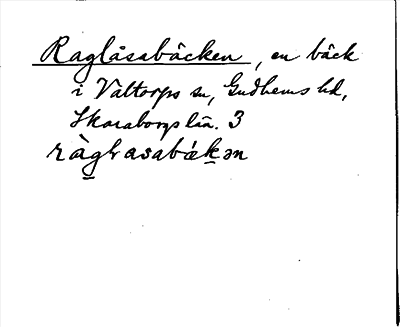 Raglåsabäcken, en bäck
i Valtorps sn, Gudhems hd,
Skaraborgs län. 3
ràgɬasabǽkən